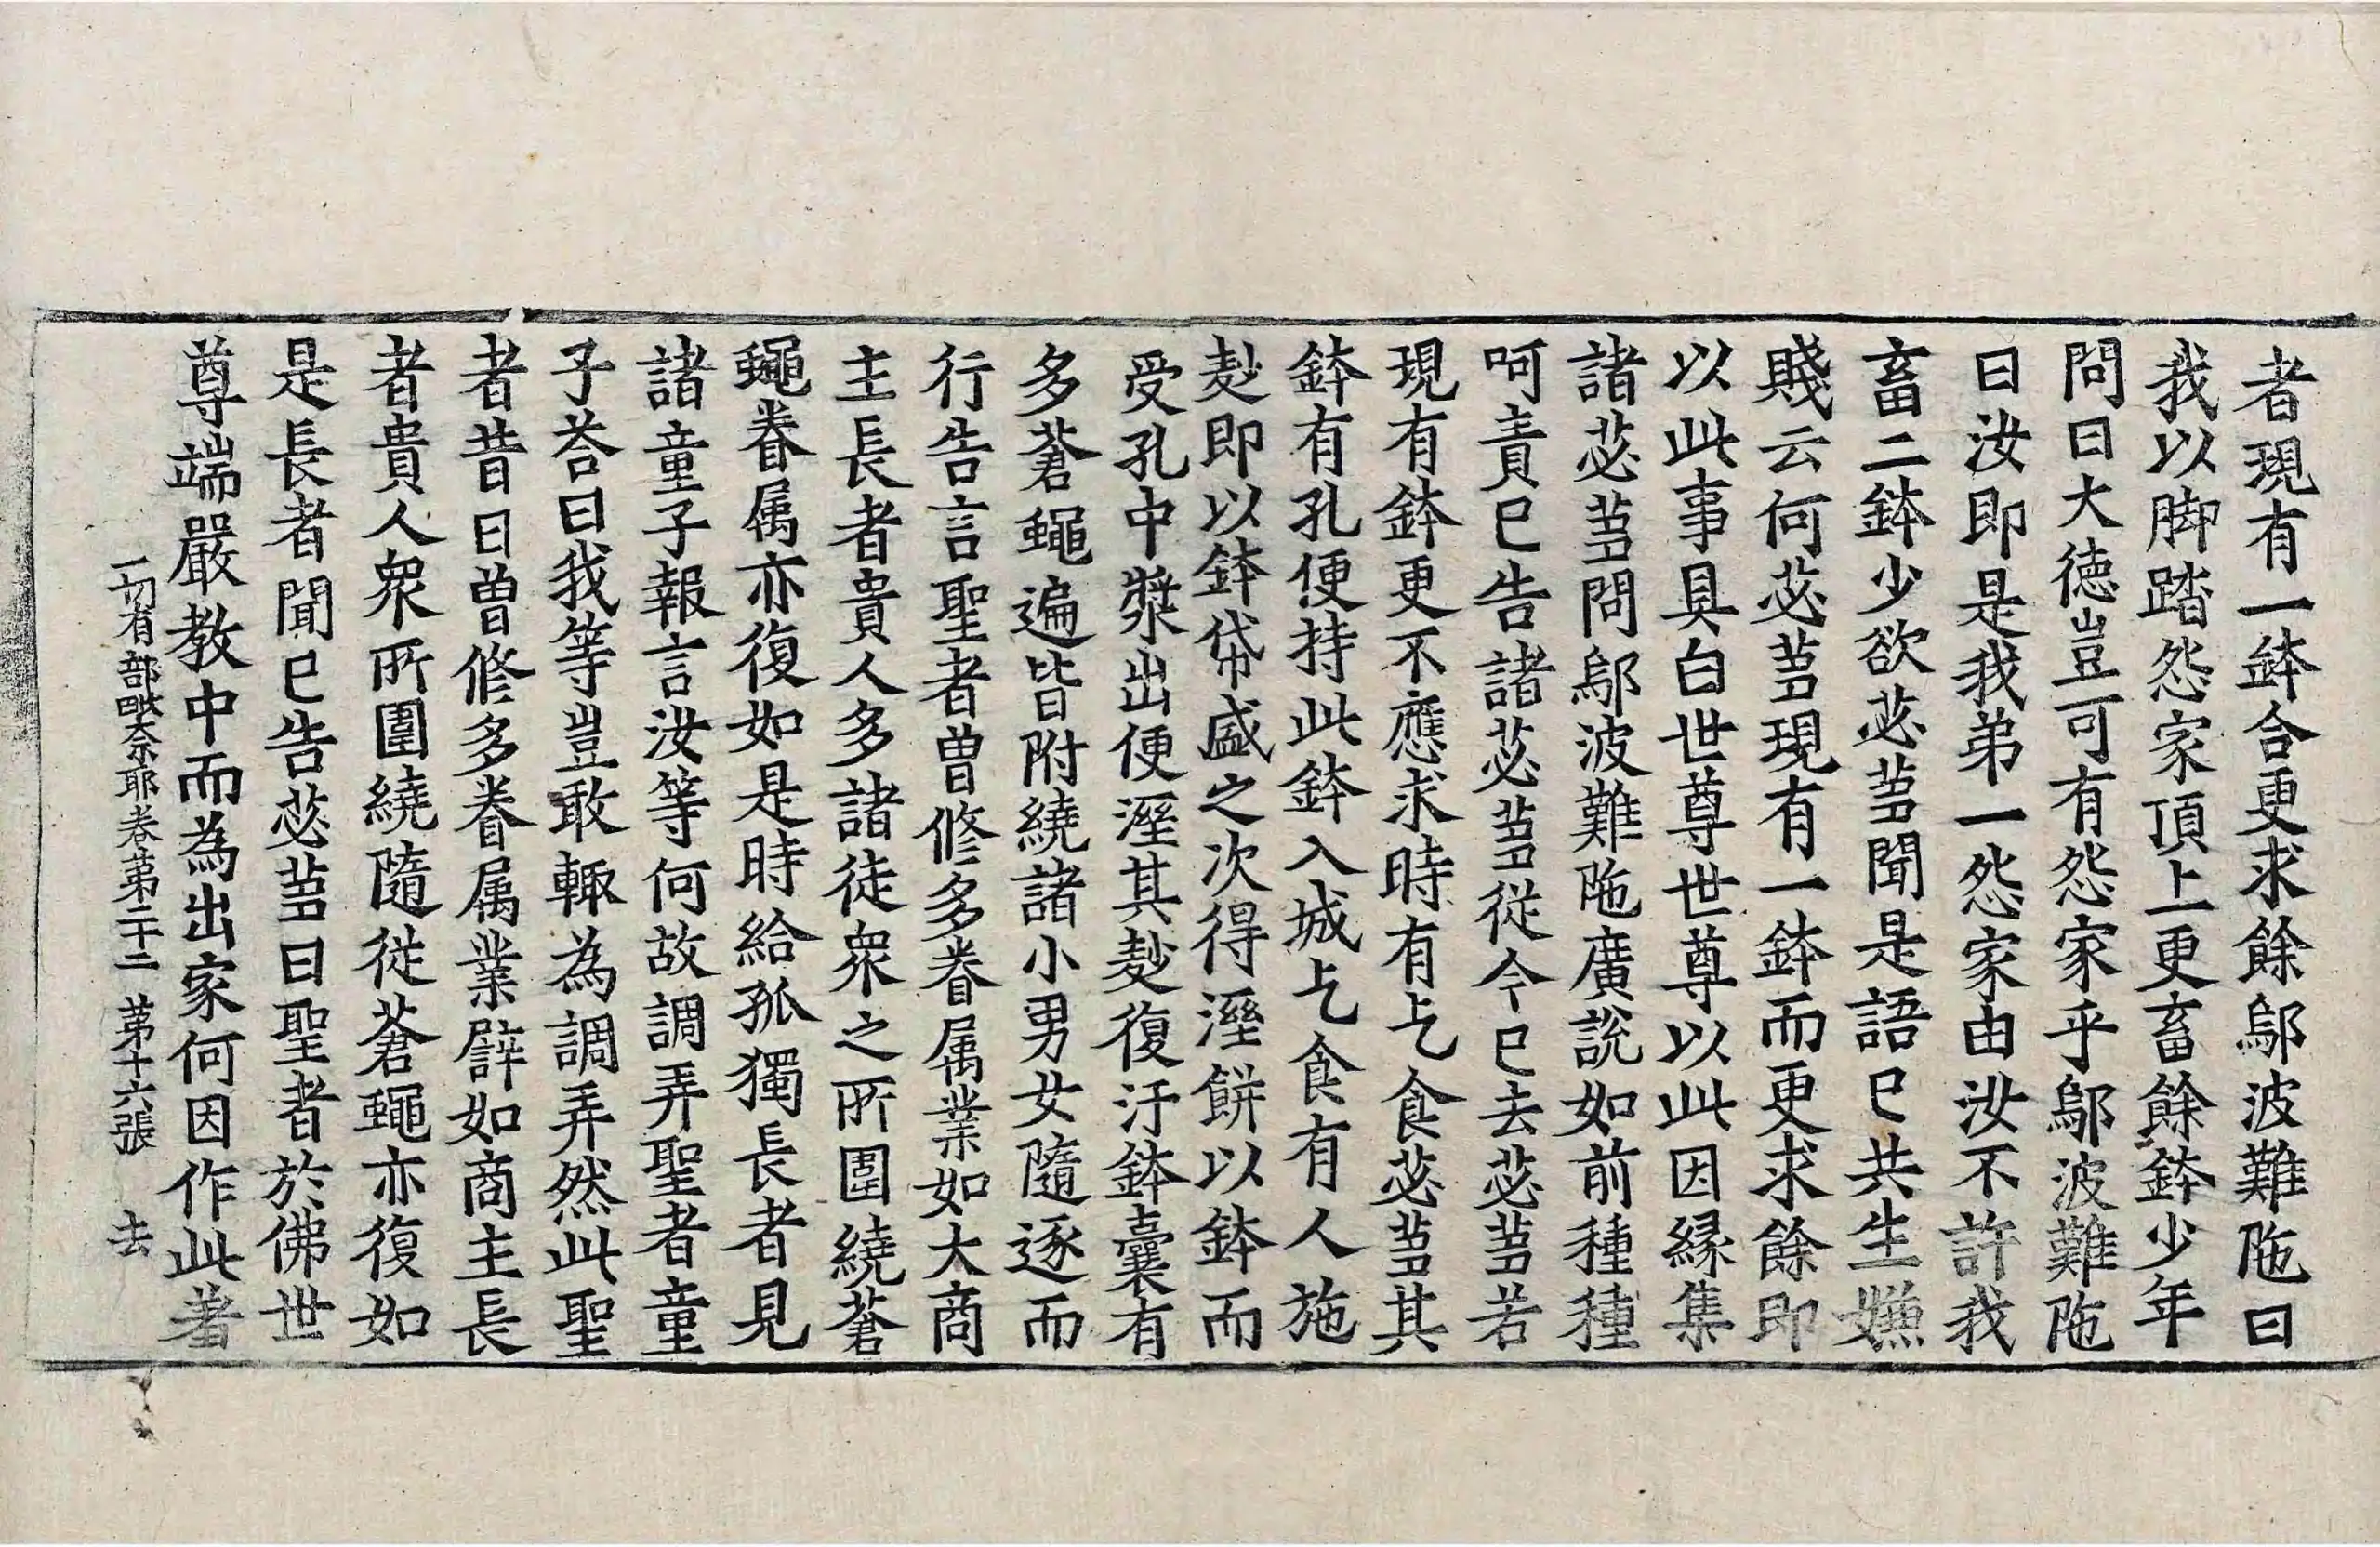 者現有一鉢合更求餘鄔波難陁曰
我以脚踏怨家頂上更畜餘鉢少年
問曰大德豈可有怨家乎鄔波難陁
曰汝即是我弟一怨家由汝不許我
畜二鉢少欲苾芻聞是語已共生嫌
賤云何苾芻現有一鉢而更求餘即
以此事具白世尊世尊以此因緣集
諸苾芻問鄔波難陁廣說如前種種
呵責已告諸苾芻從今已去苾芻若
現有鉢更不應求時有乞食苾芻其
鉢有孔便持此鉢入城乞食有人施
麨即以鉢帒盛之次得溼餅以鉢而
受孔中漿出便溼其麨復汙鉢囊有
多蒼蠅遍皆附繞諸小男女隨逐而
行告言聖者曾修多眷属業如大商
主長者貴人多諸徒衆之所圍繞蒼
蠅眷属亦復如是時給孤獨長者見
諸童子報言汝等何故調弄聖者童
子荅曰我等豈敢輒為調弄然此聖
者昔日曾修多眷属業譬如商主長
者貴人衆所圍繞隨從蒼蠅亦復如
是長者聞已告苾芻曰聖者於佛世
尊端嚴教中而為出家何因作此著
一切有部毗奈耶卷苐二十二　苐十六張　去